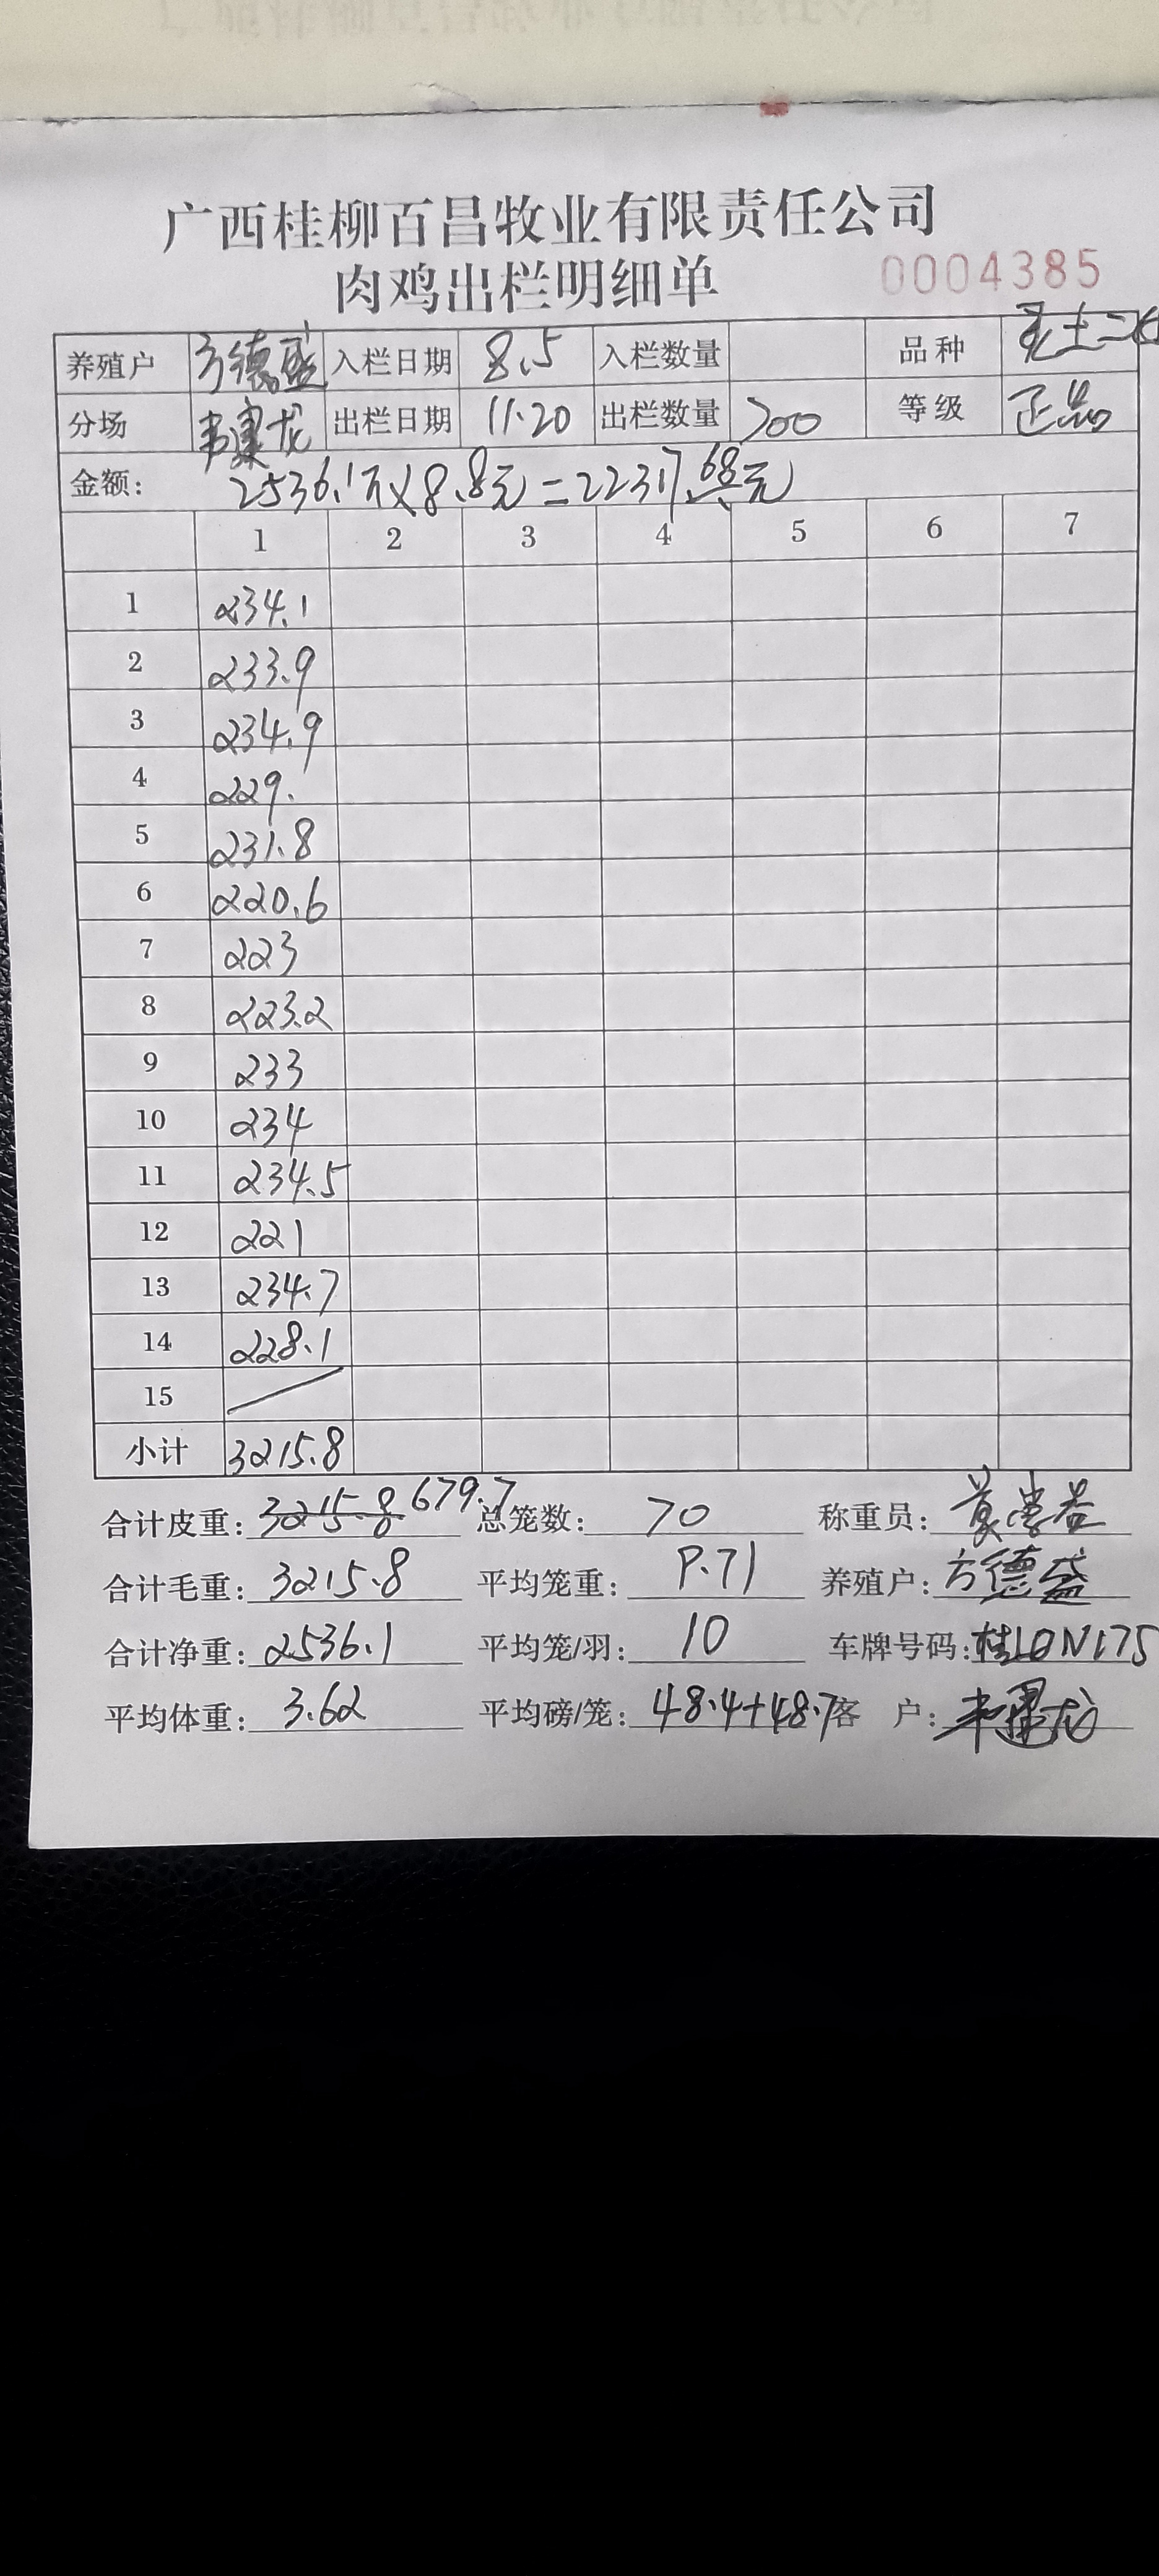 广西桂柳百昌牧业有限责任公司
肉鸡出栏明细单 0004385
养殖户 方德盛 入栏日期 8.5 入栏数量 品种 土二
分场 龙 出栏日期 11.20 出栏数量 700 等级 正品
金额: 2536.1斤×8.8元=22317.68元
1 2 3 4 5 6 7
1 234.1
2 233.9
3 234.9
4 229.
5 231.8
6 220.6
7 223
8 223.2
9 233
10 234
11 234.5
12 221
13 234.7
14 228.1
15
小计 3215.8
合计皮重: 3215.8 679.7 总笼数: 70 称重员:
合计毛重: 3215.8 平均笼重: 9.71 养殖户: 方德盛
合计净重: 2536.1 平均笼/羽: 10 车牌号码:
平均体重: 3.62 平均磅/笼: 48.4+48.7 客 户: